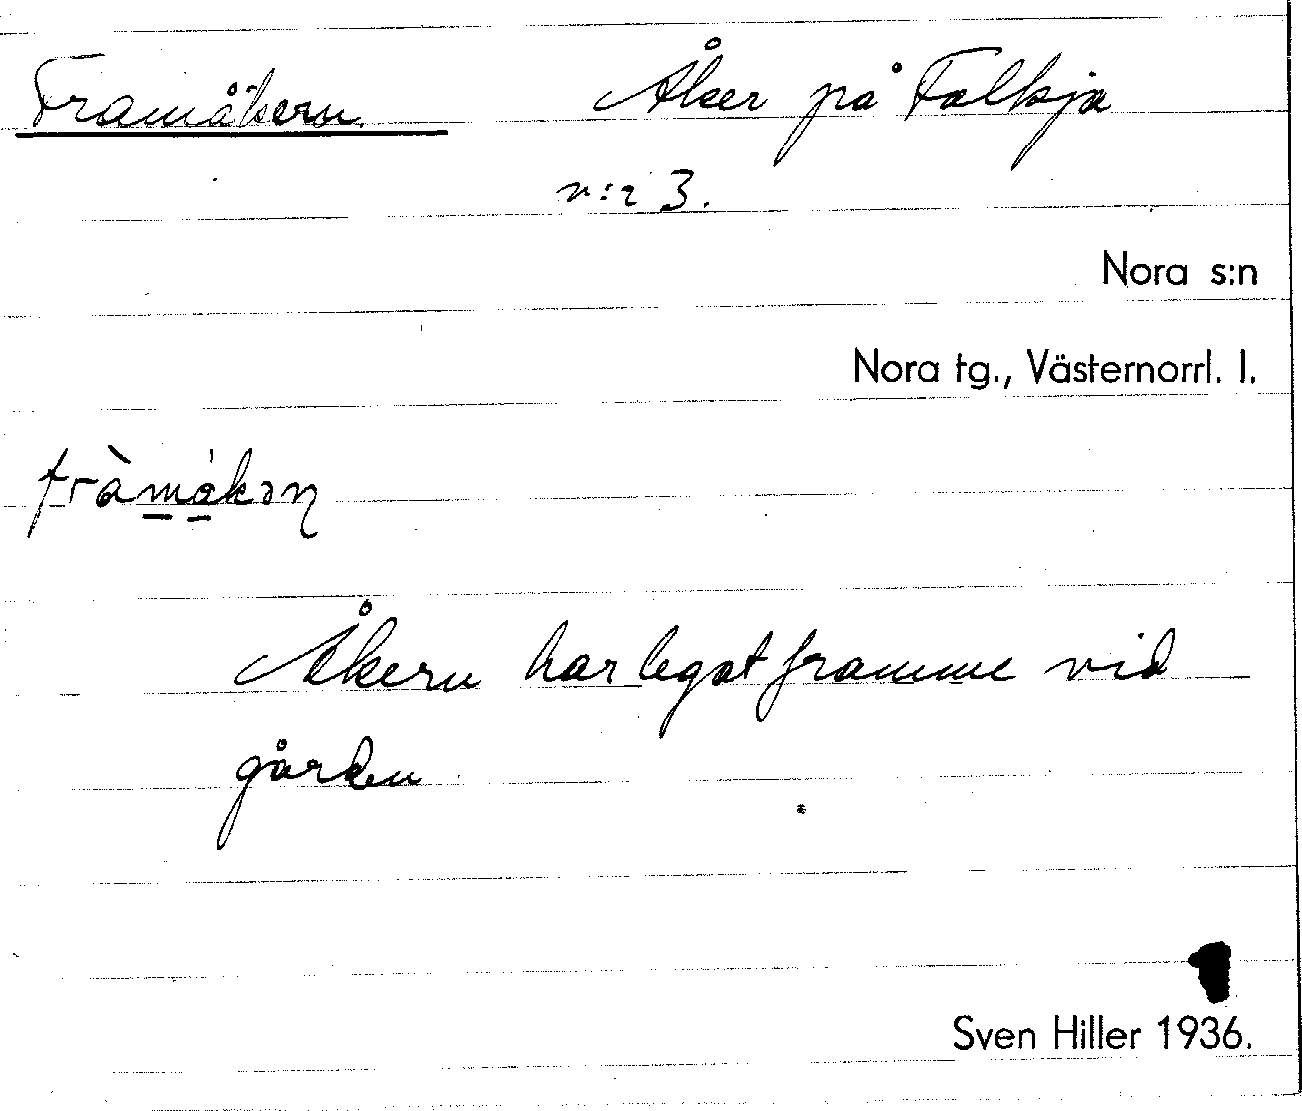 Framåkern. Åker på Falkja
n:r 3.
Nora s:n
Nora tg., Västernorrl. l.
fràmåkəɳ
Åkern har legat framme vid
gården
Sven Hiller 1936.